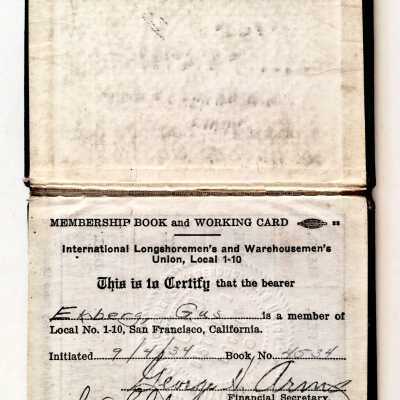 MEMBERSHIP BOOK and WORKING CARD
International Longshoremen's and Warehousemen's
Union, Local 1-10
This is to Certify that the bearer
Ekberg, Gus is a member of
Local No. 1-10, San Francisco, California.
Initiated 9/4/34 Book No. 4534
George D. Arms
Financial Secretary.